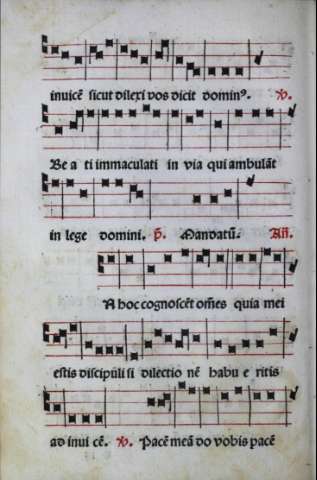 inuicē sicut dilexi vos dicit dominꝰ. ℣.
Be a ti immaculati in via qui ambulāt
in lege domini. p̄. Mandatū. Añ.
In hoc cognoscēt om̄es quia mei
estis discipuli si dilectio nē habu e ritis
ad inui cē. ℣. Pacē meā do vobis pacē